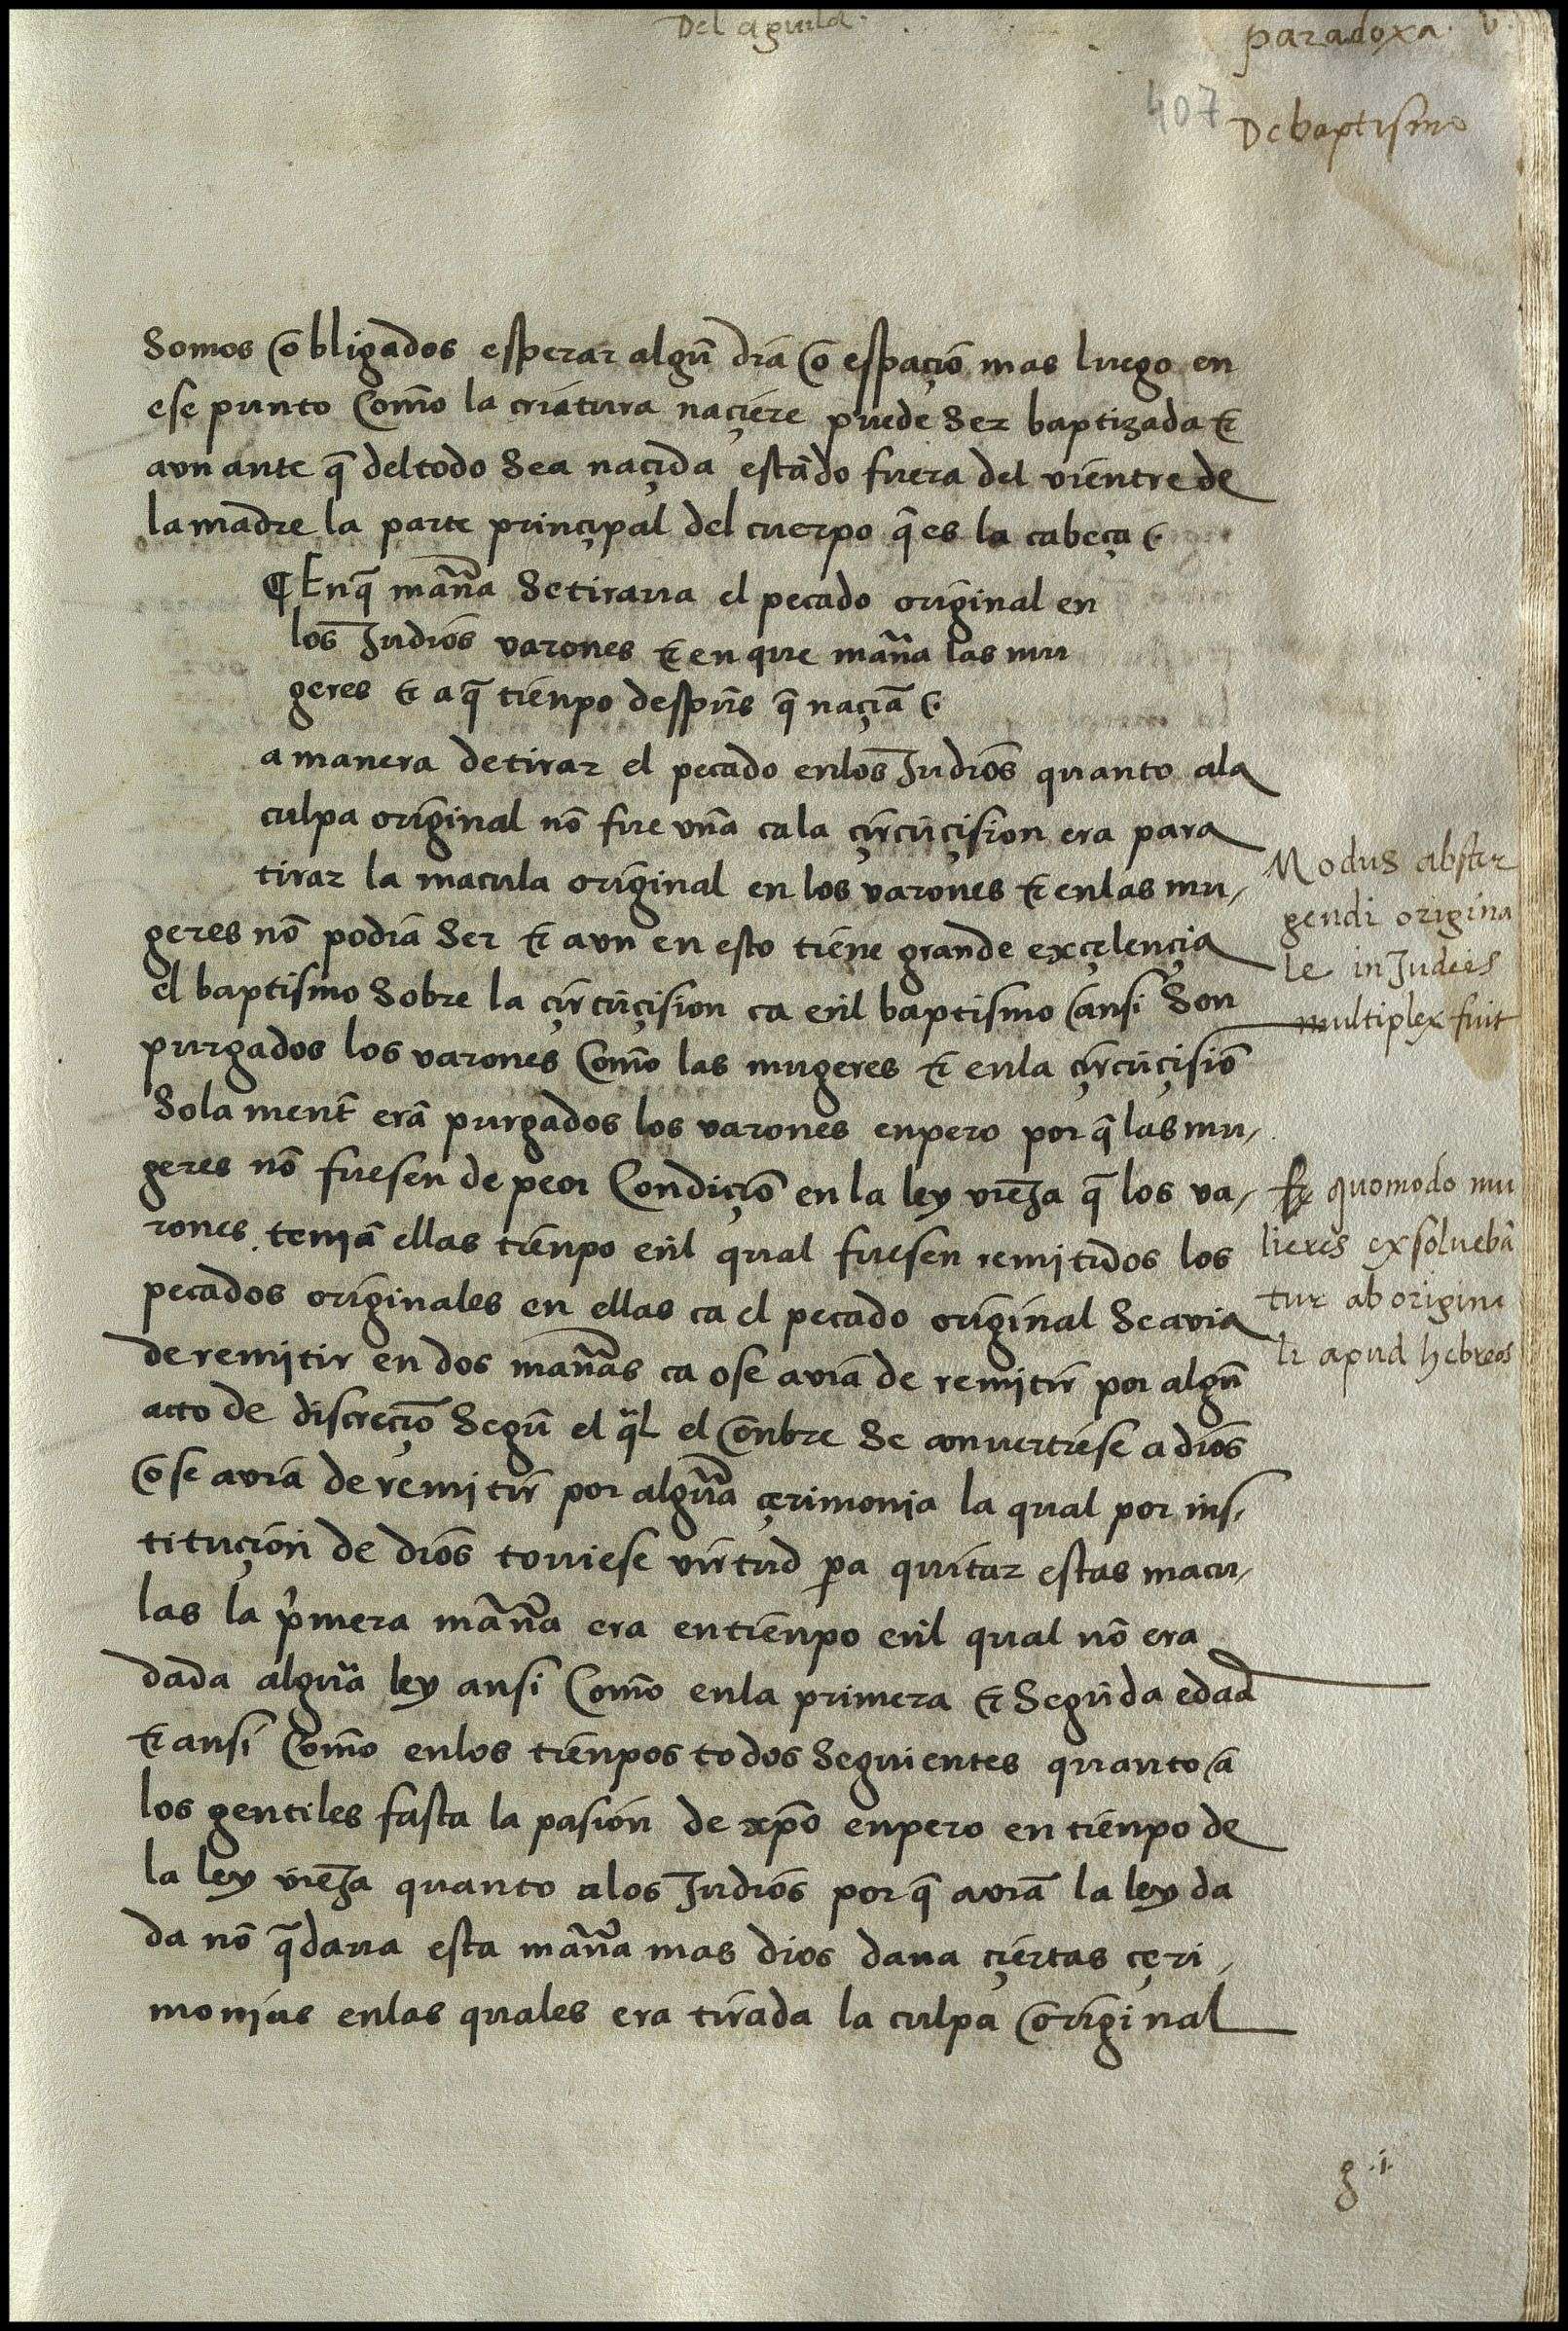 Del aguila.
paradoxa. v.
407
De baptismo
Somos obligados esperar algũ dia o espaçiõ mas luego en
ese punto Comõ la criatura naçiere puede Ser baptizada ⁊
avn ante q̃ deltodo Sea naçida estãdo fuera del vientre de
la madre la parte prinçipal del cuerpo q̃ es la cabeça.
¶ Enq̃ mãn̄a Setiraua el pecado original en
los Judiõs varones ⁊ en que mãn̄a las mu
geres ⁊ a q̃ tienpo despũs q̃ naçiã.
a manera detirar el pecado enlos Judiõs quanto ala
culpa original nõ fue vñа ca la çircũçision era para
tirar la macula original en los varones ⁊ enlas mu-
geres nõ podiã Ser ⁊ avn en esto tiene grande exçelençia
el baptismo Sobre la çircũçision ca enl̃ baptismo ansi Son
purgados los varones Comõ las mugeres ⁊ enla çircũçisiõ
Sola ment̃ erã purgados los varones enpero por q̃ las mu-
geres nõ fuesen de peor Condiçiõ en la ley vieja q̃ los va-
rones. teniã ellas tienpo enl̃ qual fuesen remitidos los
pecados originales en ellas ca el pecado original Se avia
de remitir en dos mãn̄as ca o se aviã de remitir por algũ
acto de discreçiõ Segũ el q̃l el onbre Se convertiese a diõs
o se aviã de remitir por algũa çerimonia la qual por ins-
tituçion de diõs touiese virtud p̃a quitar estas macu-
las la p̃mera mãn̄a era en tienpo enl̃ qual nõ era
dada algũa ley ansi Comõ enla primera ⁊ Segũda edad
⁊ ansi Comõ enlos tienpos todos Seguientes quanto a
los gentiles fasta la pasion de xp̃o enpero en tienpo de
la ley vieja quanto alos Judiõs por q̃ aviã la ley da
da nõ q̃daua esta mãn̄a mas dios daua çiertas çeri-
monias enlas quales era tirada la culpa original
Modus abster
gendi origina
le in Judeis
multiplex fuit
⁊ quomodo mu
lieres exsoluebã
tur ab origina
li apud hebreos
g .i.